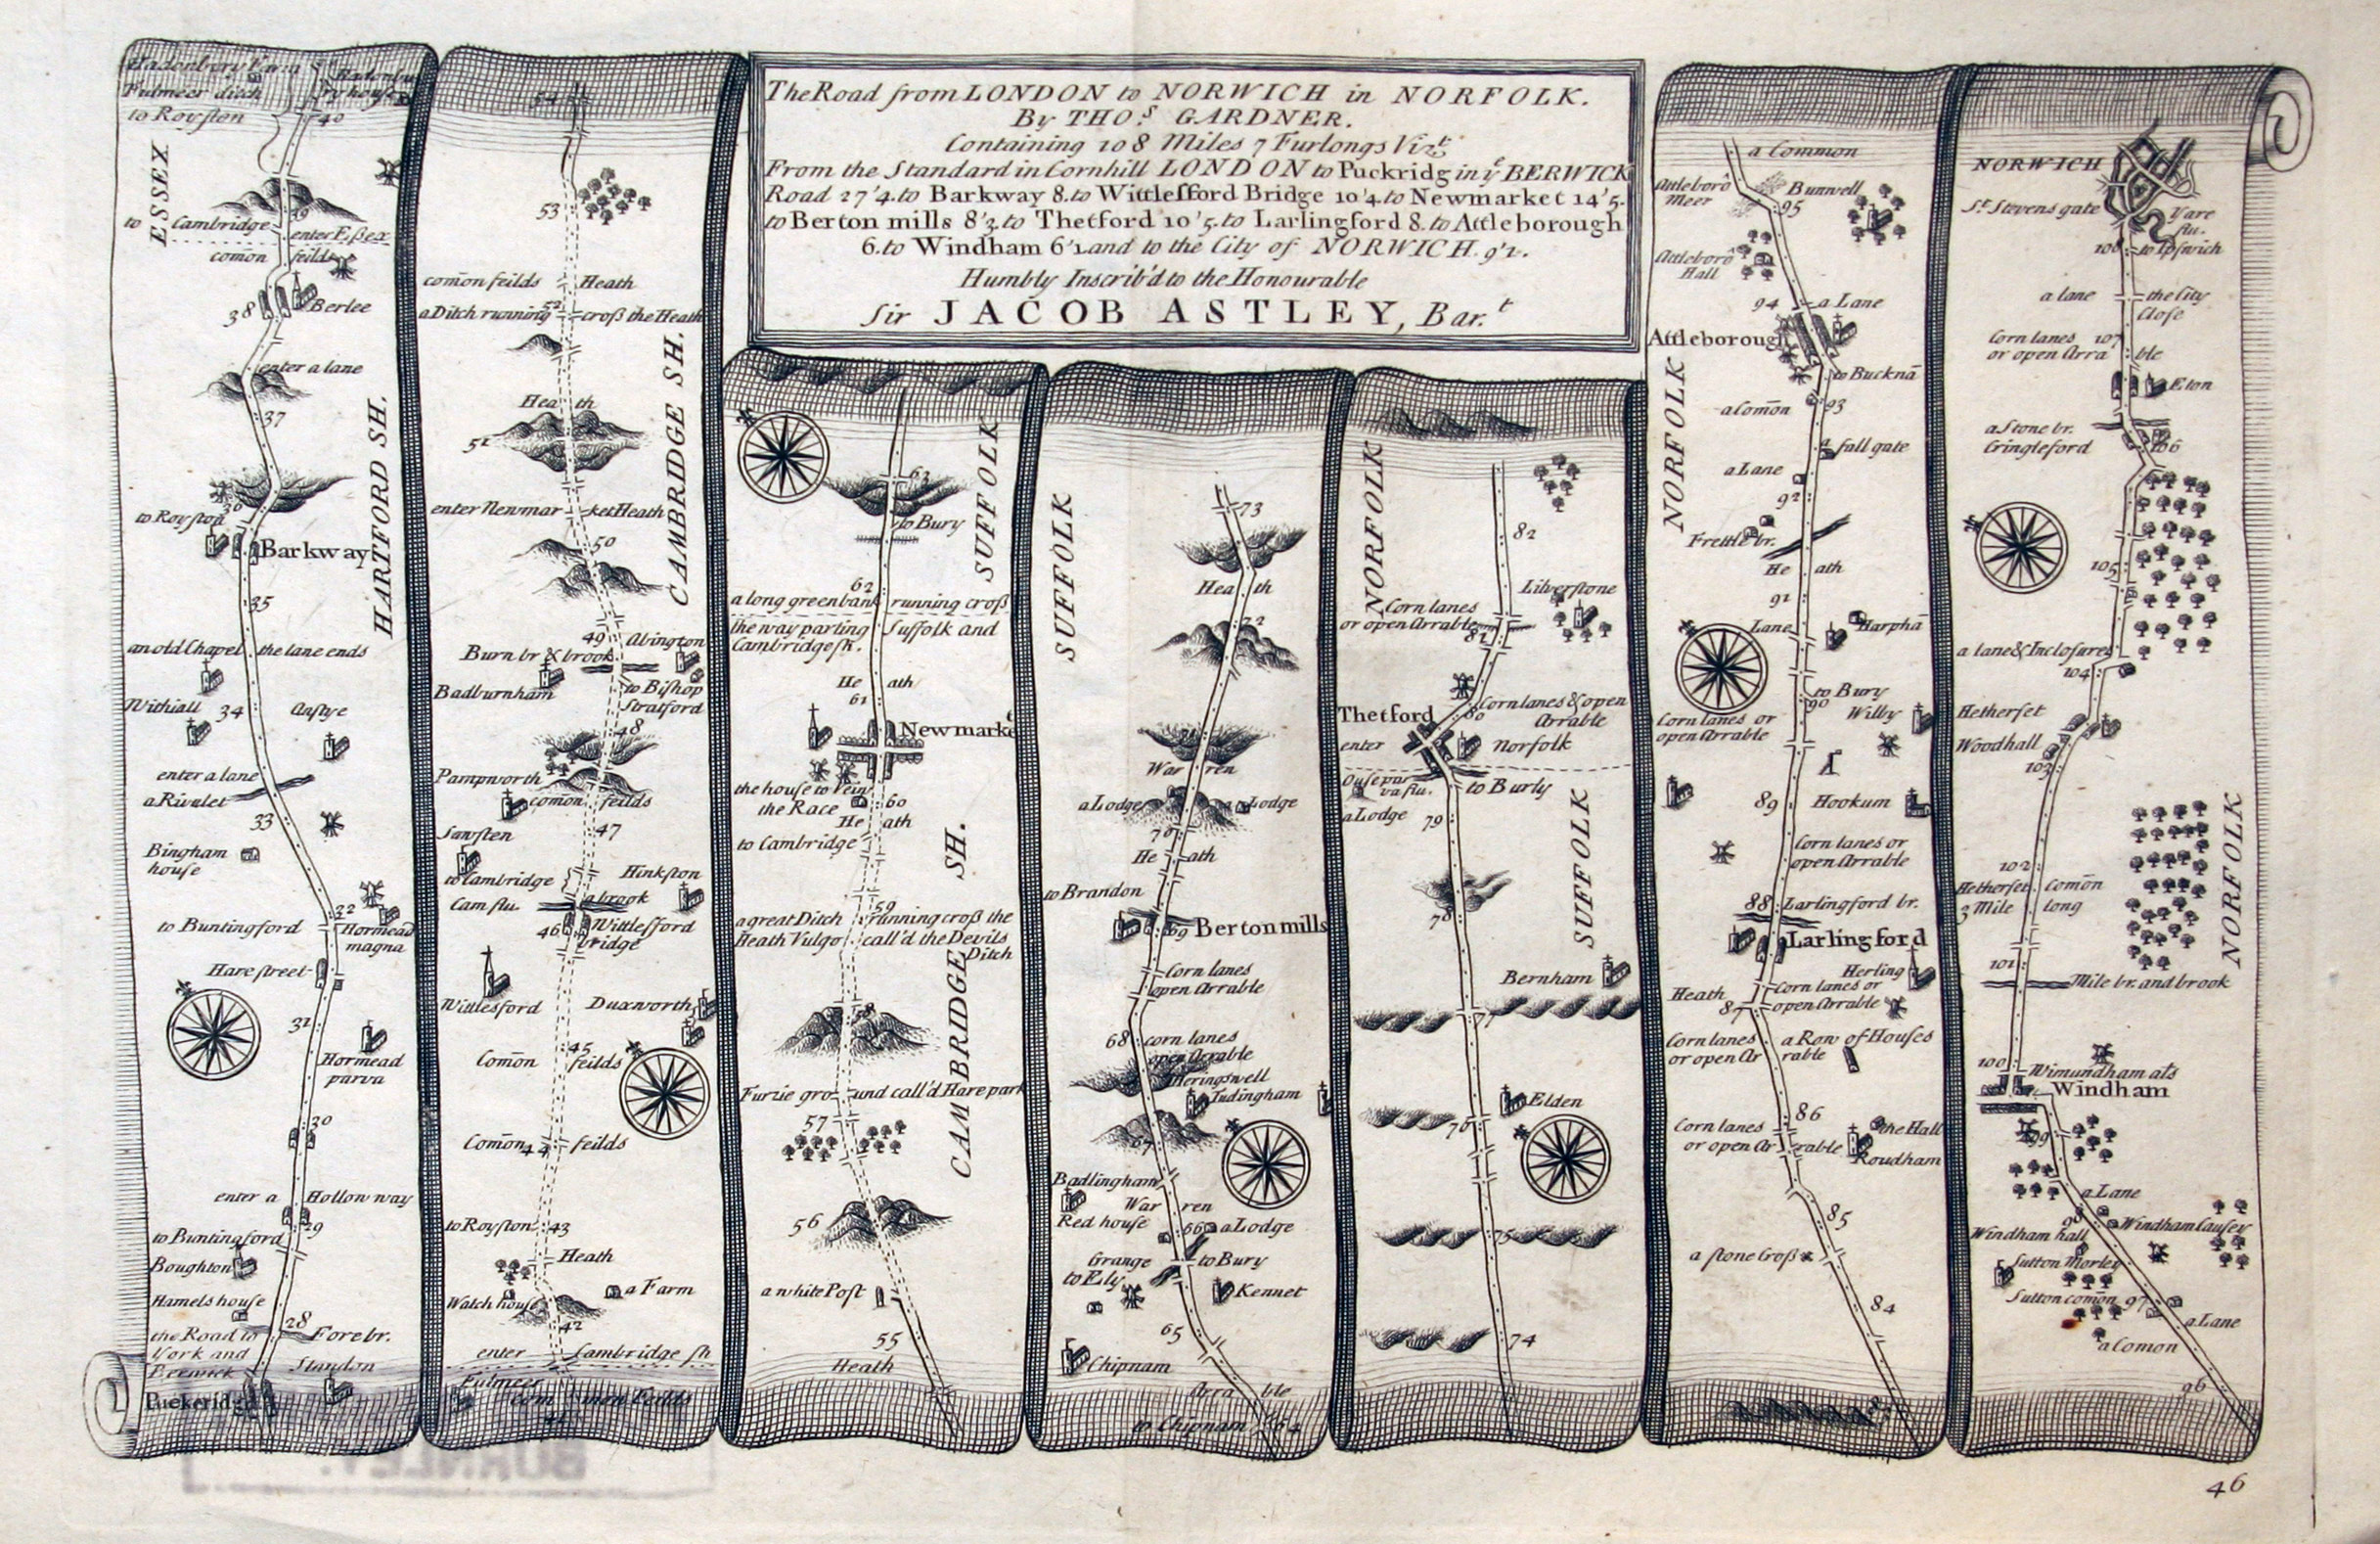 The Road from LONDON to NORWICH in NORFOLK.
By THO.s GARDNER.
Containing 108 Miles 7 Furlongs Vizt.
From the Standard in Cornhill LONDON to Puckridg in ye BERWICK
Road 27'4. to Barkway 8. to Wittlesford Bridge 10'4. to Newmarket 14'5.
to Berton mills 8'3. to Thetford 10'5. to Larlingford 8. to Attleborough
6. to Windham 6'1. and to the City of NORWICH. 9'1.
Humbly Inscrib'd to the Honourable
Sir JACOB ASTLEY, Bar.t
Fulmeer ditch
to Royston
40
ESSEX
39
to Cambridge
enter Eßex
comōn feilds
38
Berlee
enter a lane
37
HARTFORD SH.
36
to Royston
Barkway
35
an old Chapel the lane ends
Withiall
34
Anstye
enter a lane
a Rivulet
33
Bingham
house
32
to Buntingford
Hormead
magna
Hare street
31
Hormead
parva
30
enter a Hollow way
29
to Buntingford
Boughton
Hamels house
28
Fore br.
the Road to
York and
Berwick
Standon
Puckeridg
54
53
comōn feilds Heath
52
a Ditch running croß the Heath
CAMBRIDGE SH.
Heath
51
enter Newmarket Heath
50
49
Abington
Burn br & brook
Badburnham
to Bishop
Stratford
48
Pampworth
comōn feilds
Sawsten
47
to Cambridge
Hinkston
Cam flu.
a brook
46
Wittlesford
bridge
Wittlesford
Duxworth
45
Comōn feilds
44
Comōn feilds
to Royston
43
Heath
Watch house
a Farm
42
enter Cambridge sh
Fulmeer
com mon Feilds
41
63
SUFFOLK
to Bury
62
a long green bank running croß
the way parting Suffolk and
Cambridge sh.
Heath
61
Newmarket
the house to Vein
the Race
60
Heath
to Cambridge
CAMBRIDGE SH.
59
a great Ditch running croß the
Heath Vulgo call'd the Devils
Ditch
58
Furzie ground call'd Hare park
57
56
a white Post
55
Heath
73
SUFFOLK
Heath
72
71
Warren
a Lodge
Lodge
70
Heath
to Brandon
69
Berton mills
Corn lanes
open Arrable
68
corn lanes
open Arrable
Heringswell
Tudingham
67
Badlingham
Warren
Red house
66
a Lodge
Grange
to Bury
to Ely
Kennet
65
Chipnam
Arrable
to Chipnam
64
NORFOLK
82
Lilverstone
Corn lanes
or open Arrable
81
Corn lanes & open
Arrable
80
Thetford
enter Norfolk
Ouse par
va flu.
to Burly
a Lodge
79
SUFFOLK
78
Bernham
77
Elden
76
75
74
a Common
Attleboro
Meer
Bunwell
95
Attleboro
Hall
94
a Lane
Attleborough
NORFOLK
to Bucknā
a Comōn
93
fall gate
a Lane
92
Frettle br.
Heath
91
Lane
Harphā
to Bury
90
Corn lanes or
open Arrable
Wilby
89
Hookum
Corn lanes or
open Arrable
88
Larlingford br.
Larlingford
Herling
Heath
Corn lanes or
open Arrable
87
Corn lanes
or open Arrable
a Row of Houses
86
Corn lanes
or open Arrable
the Hall
Roudham
85
a stone Croß
84
83
NORWICH
St. Stevens gate
Yare
flu.
108
to Ipswich
a lane
the City
Close
107
Corn lanes
or open Arrable
Eton
a Stone br.
Cringleford
106
105
a lane & Inclosures
104
Hetherset
Woodhall
103
NORFOLK
102
Hetherset Comōn
3 Mile long
101
Mile br. and brook
100
Wimundham als
Windham
99
a Lane
98
Windham Causey
Windham hall
Sutton Morley
Sutton comōn
97
a Lane
a Comon
96
46